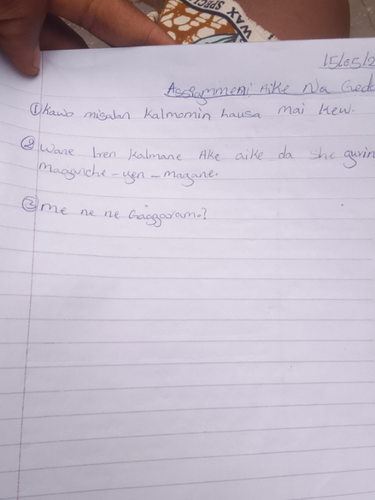 WAX
15/05/2
Assignment Aike Na Geda
① Kawo misalan kalmomin hausa mai kew.
② Wane Iren kalmane Ake aike da she gurin
Magance-yen-magane.
③ Me ne ne Gaggarami?